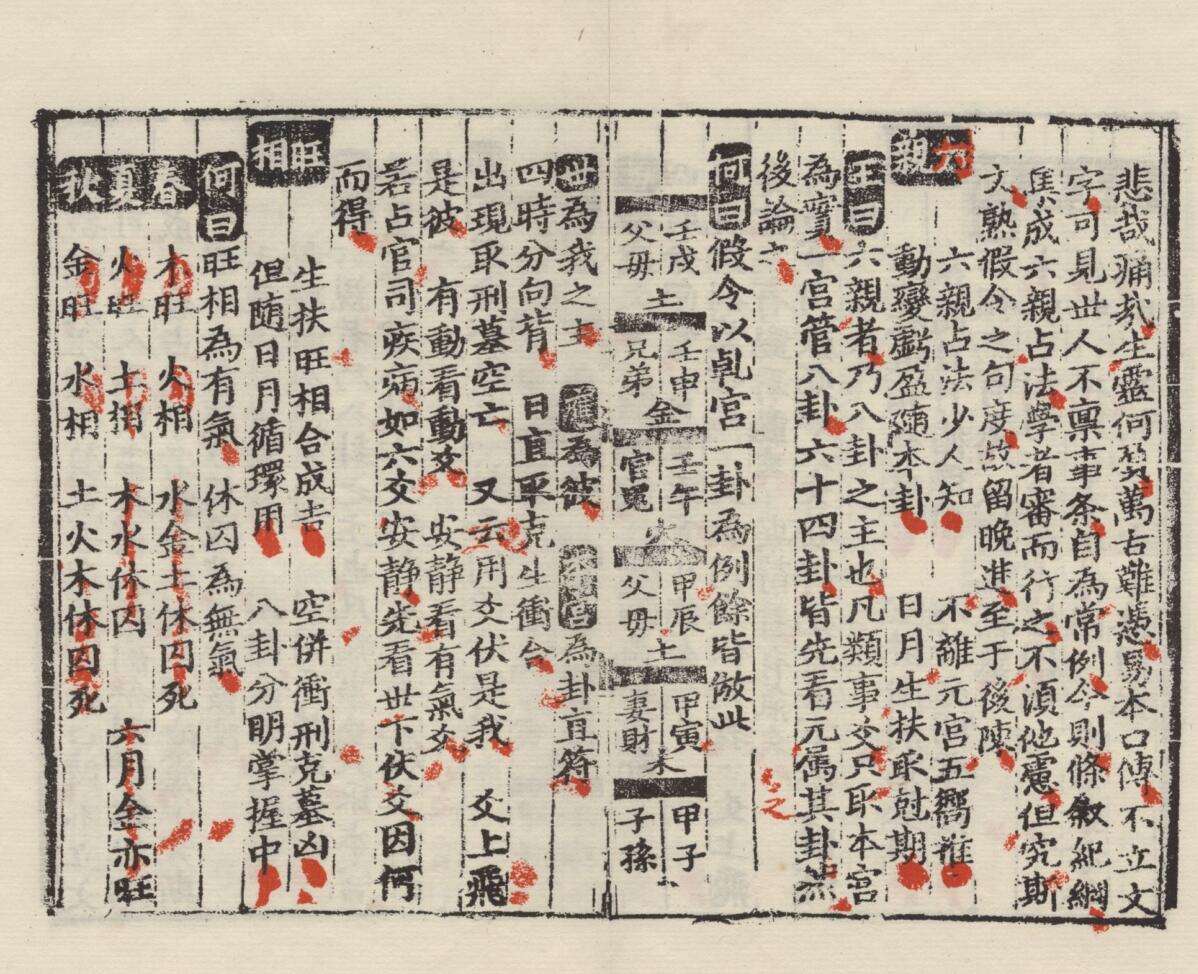 悲哉痛哉生靈何莫萬古難憑易本口傳不立文
字可見世人不稟事条自為常例今則條敘紀綱
集成六親占法學者審而行之不須他慮但究斯
文熟假令之句度故留晚進至于後陳
六親
六親占法少人知 不離元官五鄉推
動變虧盈隨本卦 日月生扶取尅期
王曰六親者乃八卦之主也凡類事爻只取本宮
為實一宮管八卦六十四卦皆先看元属其卦
後論之
何曰假令以乹宮一卦為例餘皆倣此
壬戌 土 父母
壬申 金 兄弟
壬午 火 官鬼
甲辰 土 父母
甲寅 木 妻財
甲子 子孫
世為我之主 應為彼 本宮為卦直符
四時分向背 日直平克生衝合
出現取刑墓空亡 又云用爻伏是我 爻上飛
是彼 有動看動爻 安静看有氣爻
若占官司疾病如六爻安静先看世下伏爻因何
而得
旺相
生扶旺相合成吉 空併衝刑克墓凶
但随日月循環用 八卦分明掌握中
何曰旺相為有氣 休囚為無氣
春 木旺 火相 水金土休囚死
夏 火旺 土相 木水休囚 六月金亦旺
秋 金旺 水相 土火木休囚死